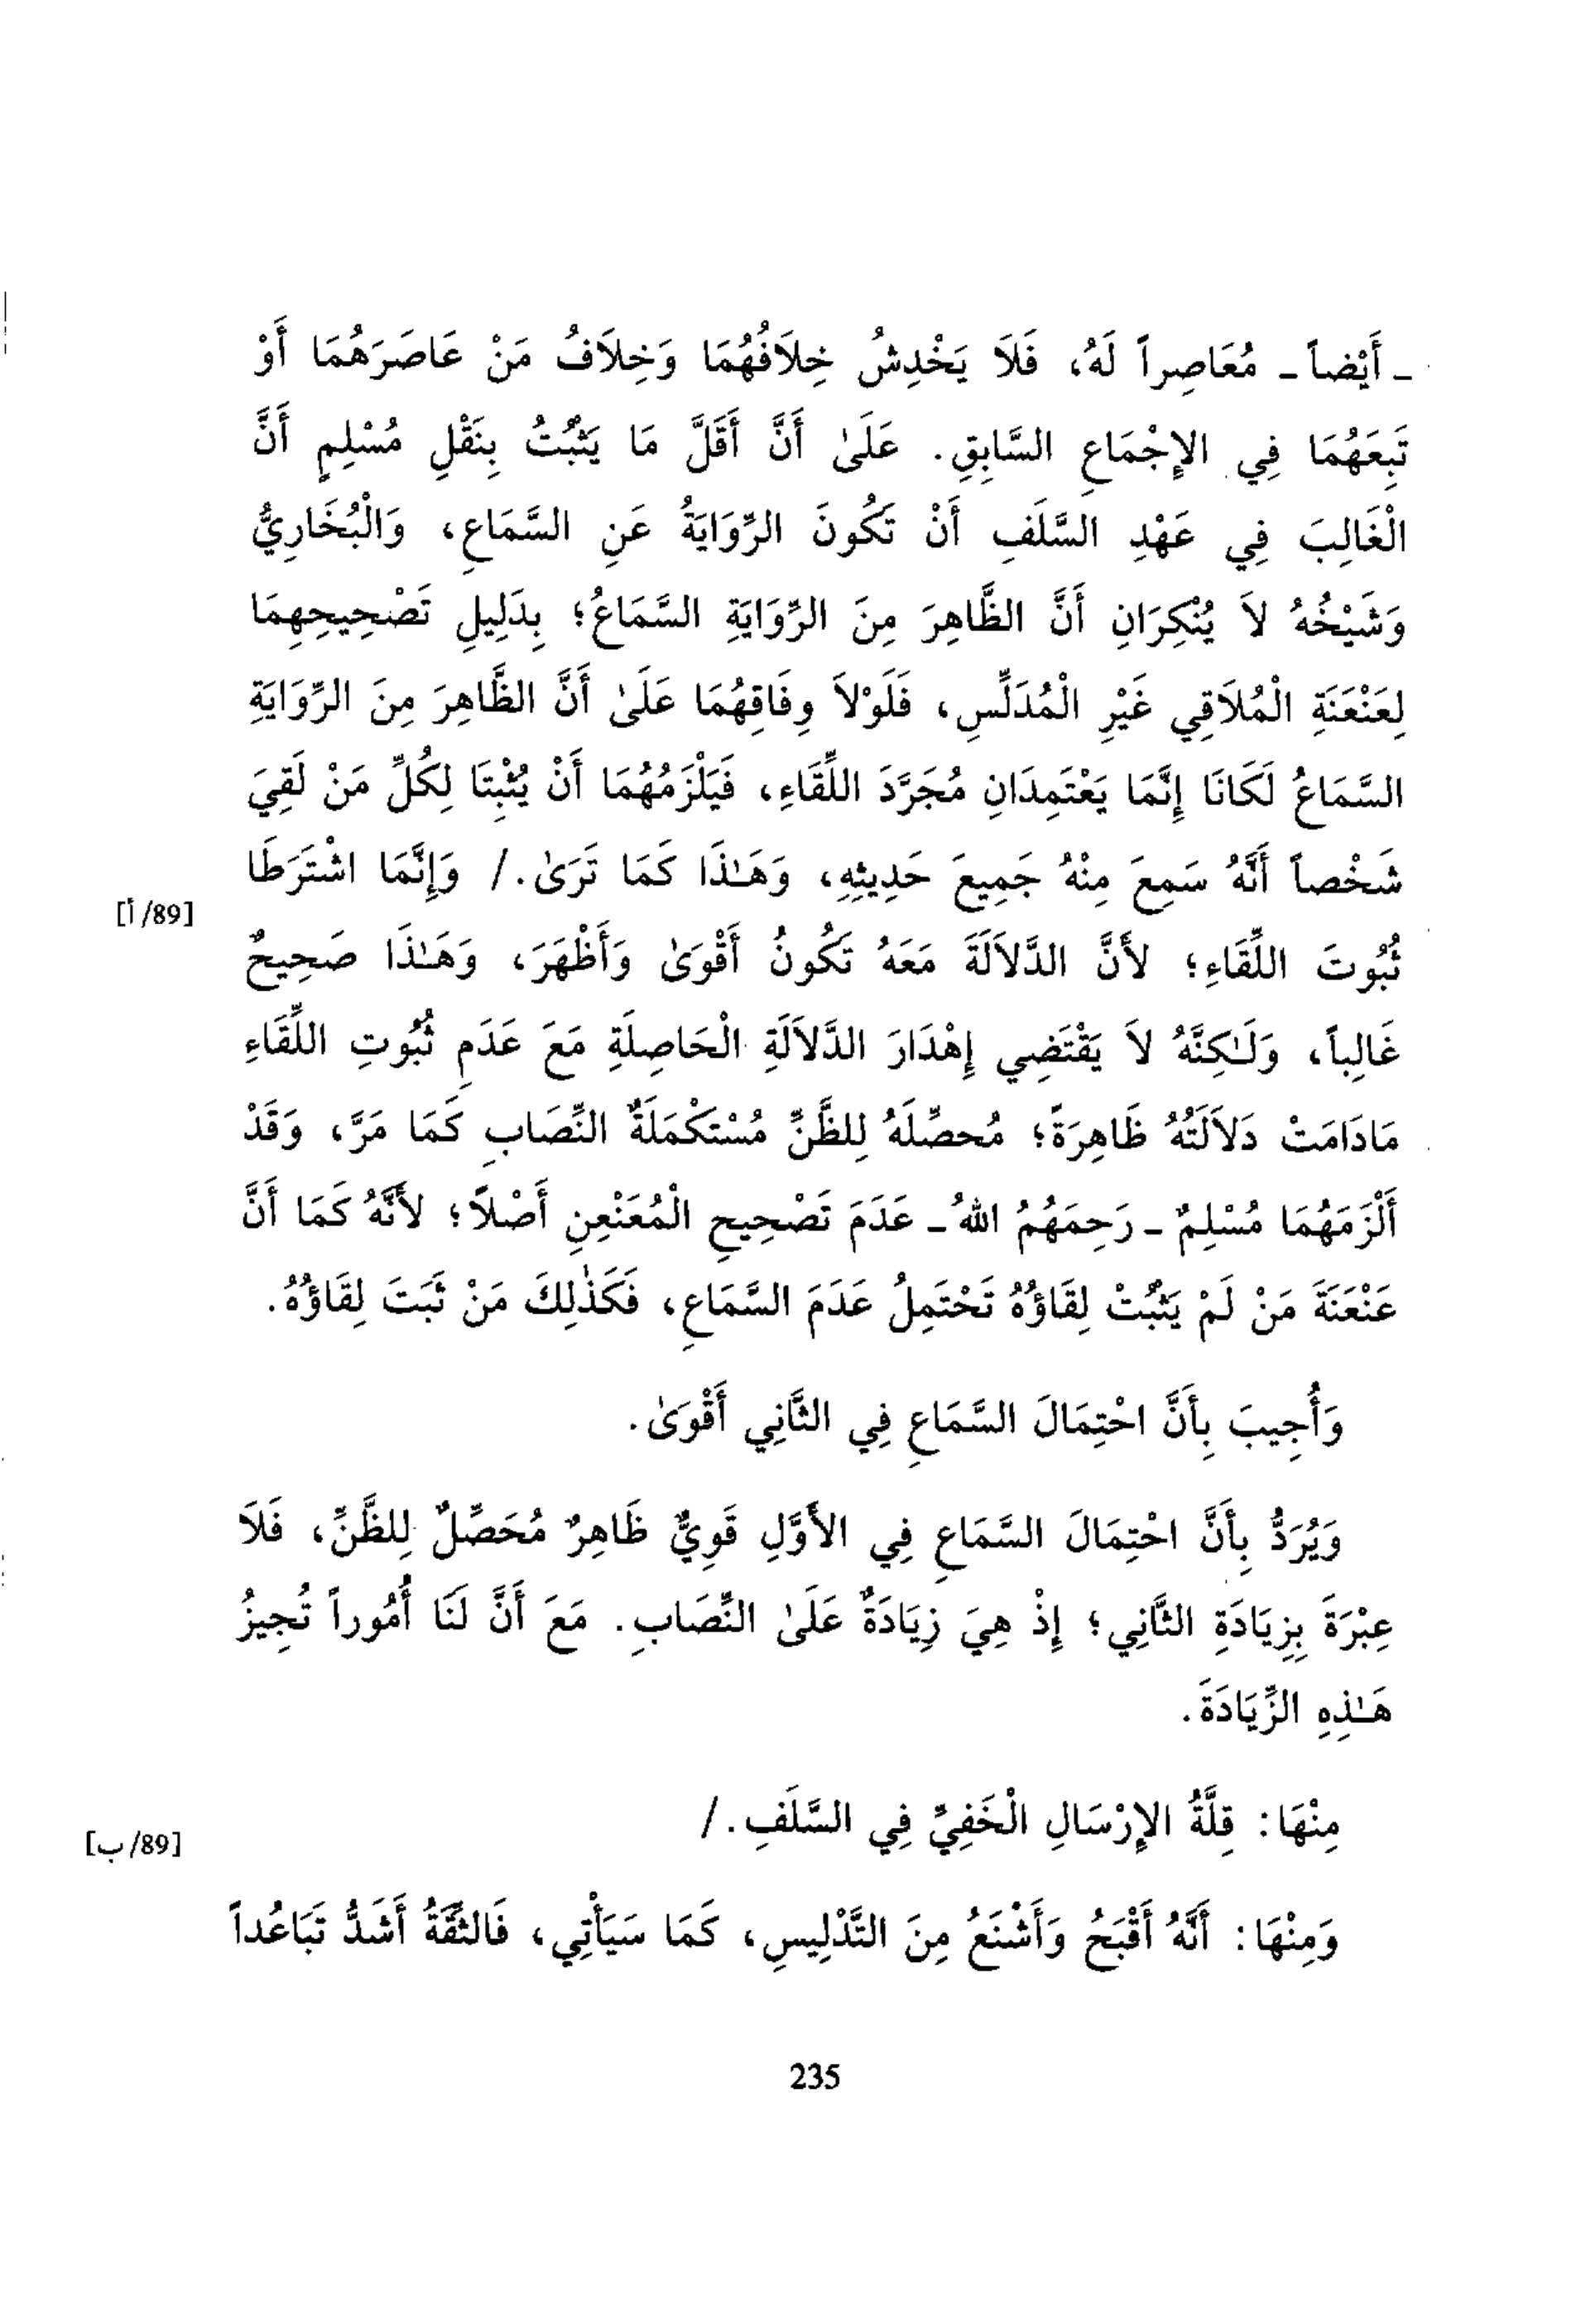 ـ أَيْضاً ـ مُعَاصِراً لَهُ، فَلَا يَخْدِشُ خِلَافُهُمَا وَخِلَافُ مَنْ عَاصَرَهُمَا أَوْ
تَبِعَهُمَا فِي الإِجْمَاعِ السَّابِقِ. عَلَىٰ أَنَّ أَقَلَّ مَا يَثْبُتُ بِنَقْلِ مُسْلِمٍ أَنَّ
الْغَالِبَ فِي عَهْدِ السَّلَفِ أَنْ تَكُونَ الرِّوَايَةُ عَنِ السَّمَاعِ، وَالْبُخَارِيُّ
وَشَيْخُهُ لاَ يُنْكِرَانِ أَنَّ الظَّاهِرَ مِنَ الرِّوَايَةِ السَّمَاعُ؛ بِدَلِيلِ تَصْحِيحِهِمَا
لِعَنْعَنَةِ الْمُلَاقِي غَيْرِ الْمُدَلِّسِ، فَلَوْلاَ وِفَاقِهُمَا عَلَىٰ أَنَّ الظَّاهِرَ مِنَ الرِّوَايَةِ
السَّمَاعُ لَكَانَا إِنَّمَا يَعْتَمِدَانِ مُجَرَّدَ اللِّقَاءِ، فَيَلْزَمُهُمَا أَنْ يُثْبِتَا لِكُلِّ مَنْ لَقِيَ
شَخْصاً أَنَّهُ سَمِعَ مِنْهُ جَمِيعَ حَدِيثِهِ، وَهَـٰذَا كَمَا تَرَىٰ./ وَإِنَّمَا اشْتَرَطَا
[89/أ]
ثُبُوتَ اللِّقَاءِ؛ لأَنَّ الدَّلاَلَةَ مَعَهُ تَكُونُ أَقْوَىٰ وَأَظْهَرَ، وَهَـٰذَا صَحِيحٌ
غَالِباً، وَلَـٰكِنَّهُ لاَ يَقْتَضِي إِهْدَارَ الدَّلاَلَةِ الْحَاصِلَةِ مَعَ عَدَمِ ثُبُوتِ اللِّقَاءِ
مَادَامَتْ دَلاَلَتُهُ ظَاهِرَةً؛ مُحصِّلَهُ لِلظَّنِّ مُسْتَكْمَلَةٌ النِّصَابِ كَمَا مَرَّ، وَقَدْ
أَلْزَمَهُمَا مُسْلِمٌ ـ رَحِمَهُمُ اللهُ ـ عَدَمَ تَصْحِيحِ الْمُعَنْعِنِ أَصْلاً؛ لأَنَّهُ كَمَا أَنَّ
عَنْعَنَةَ مَنْ لَمْ يَثْبُتْ لِقَاؤُهُ تَحْتَمِلُ عَدَمَ السَّمَاعِ، فَكَذٰلِكَ مَنْ ثَبَتَ لِقَاؤُهُ.
وَأُجِيبَ بِأَنَّ احْتِمَالَ السَّمَاعِ فِي الثَّانِي أَقْوَىٰ.
وَيُرَدُّ بِأَنَّ احْتِمَالَ السَّمَاعِ فِي الأَوَّلِ قَوِيٌّ ظَاهِرٌ مُحَصِّلٌ لِلظَّنِّ، فَلاَ
عِبْرَةَ بِزِيَادَةِ الثَّانِي؛ إِذْ هِيَ زِيَادَةٌ عَلَىٰ النِّصَابِ. مَعَ أَنَّ لَنَا أُمُوراً تُجِيزُ
هَـٰذِهِ الزِّيَادَةَ.
مِنْهَا: قِلَّةُ الإِرْسَالِ الْخَفِيِّ فِي السَّلَفِ./
[89/ب]
وَمِنْهَا: أَنَّهُ أَقْبَحُ وَأَشْنَعُ مِنَ التَّدْلِيسِ، كَمَا سَيَأْتِي، فَالثِّقَةُ أَشَدُّ تَبَاعُداً
235